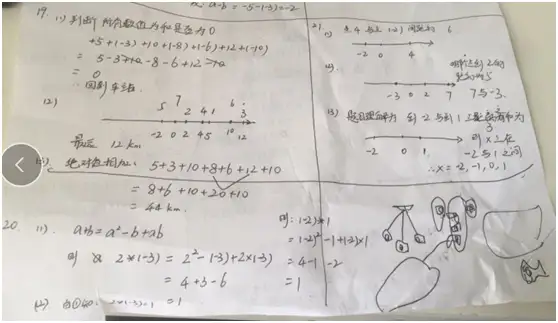 a-b=-5-(-3)=-2
19. (1) 判断所有数值为和是否为0
+5+(-3)+10+(-8)+(-6)+12+(-10)
= 5-3+10-8-6+12-10
= 0
∴回到车站.
(2)
5 7 2 4 1 6 3
-2 0 2 4 5 10 12
最远 12 km
(3) 绝对值相加: 5+3+10+8+6+12+10
= 8+6+10+20+10
= 44 km.
20. (1). a*b=a²-b+ab
则 2*(-3) = 2²-(-3)+2×(-3)
= 4+3-6
= 1
(2).
则: (-2)*1
=(-2)²-1+(-2)×1
=4-1-2
=1
21. (1) 4与-2 间距为 6
-2 0 4
(2).
到2的距离为5
-3 0 2 7
7与-3.
(3) 到-2与到1之距离和为3
-2 0 1
则x在-2与1之间
∴x=-2,-1,0,1